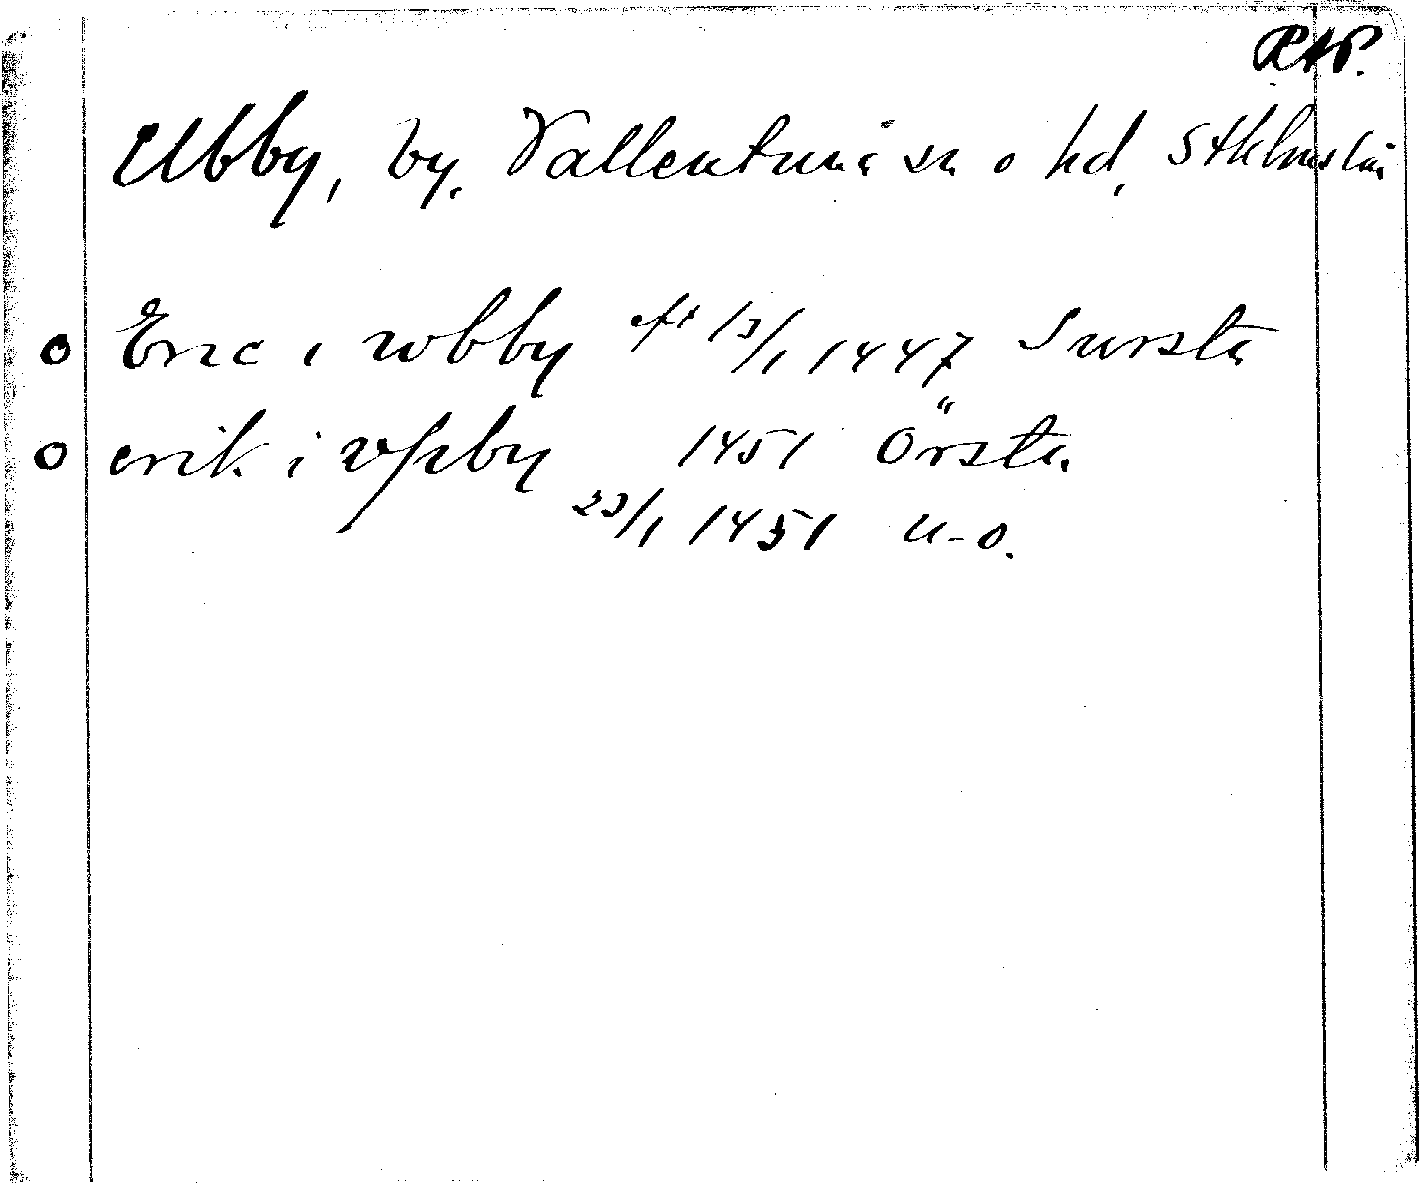 RAP.
Ubby, by. Vallentuna sn o hd, Sthlms län
o Eric i wbby eft 13/1 1447 Sursta
o erik i vpby 1451 Örsta
23/1 1451 u-o.